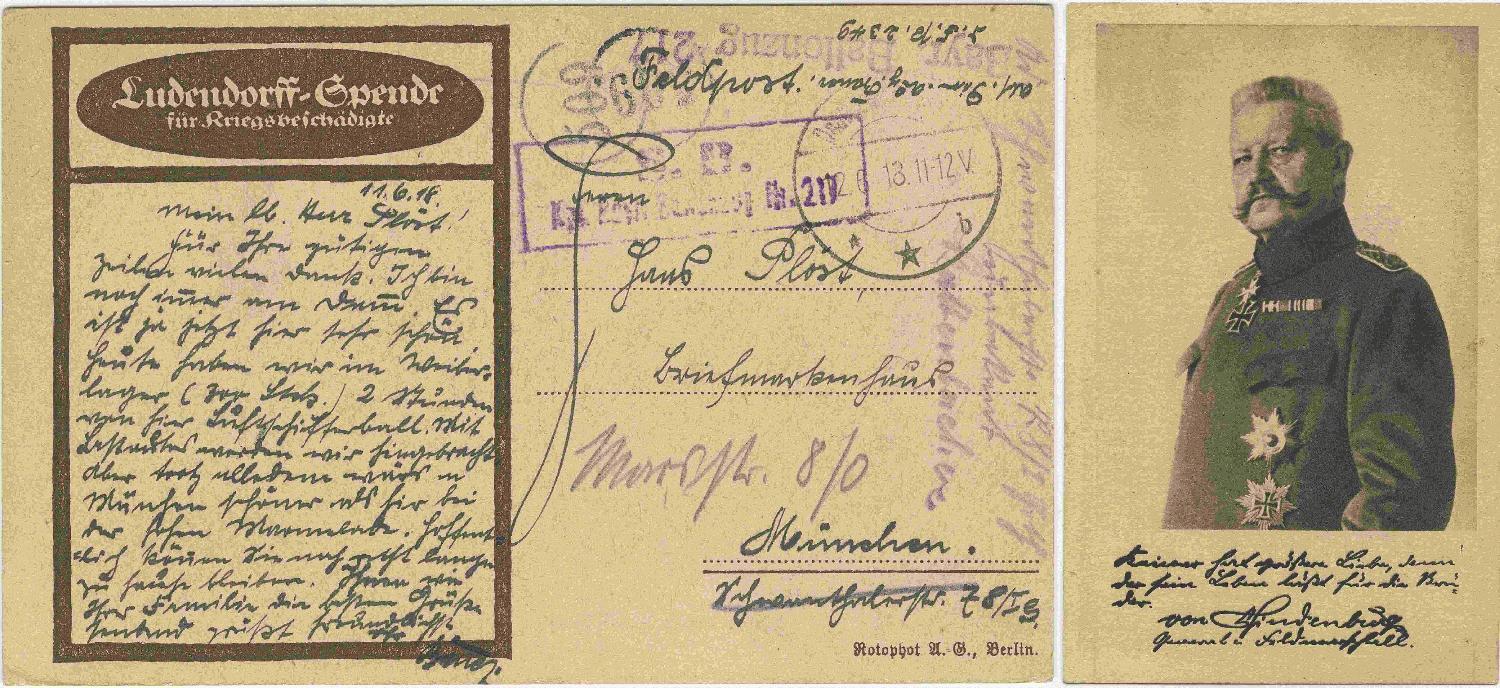 Ludendorff-Spende
für Kriegsbeschädigte
11.6.18.
Mein lb. Herr Plöst!
Für Ihre gütigen
Zeilen vielen Dank. Ich bin
noch immer am Damm. Es
ist ja jetzt hier sehr schön
heute haben wir im Weiber-
lager (300 Stck.) 2 Stunden
von hier Luftschifferball. Mit
Lastautos werden wir hingebracht
Aber trotz alledem wärs in
München schöner als hir bei
der Marmelade. Hoffent-
lich können Sie noch recht lange
zu Hause bleiben. Ihnen wie
Ihrer Familie die besten Grüße
sendend grüßt freundlichst
Ihr
Bayr. Ballonzug 217
Feldpost.
S. B.
Kgl. Bayr. Ballonzug Nr. 217
12 6 18. 11-12 V.
b
Herrn
Hans Plöst,
Briefmarkenhaus
Marsstr. 8/0
München.
Schwanthalerstr. 78/I
Rotophot A.-G., Berlin.
Keiner hat größere Liebe, denn
der sein Leben läßt für die Brü-
der.
von Hindenburg
Generalfeldmarschall.